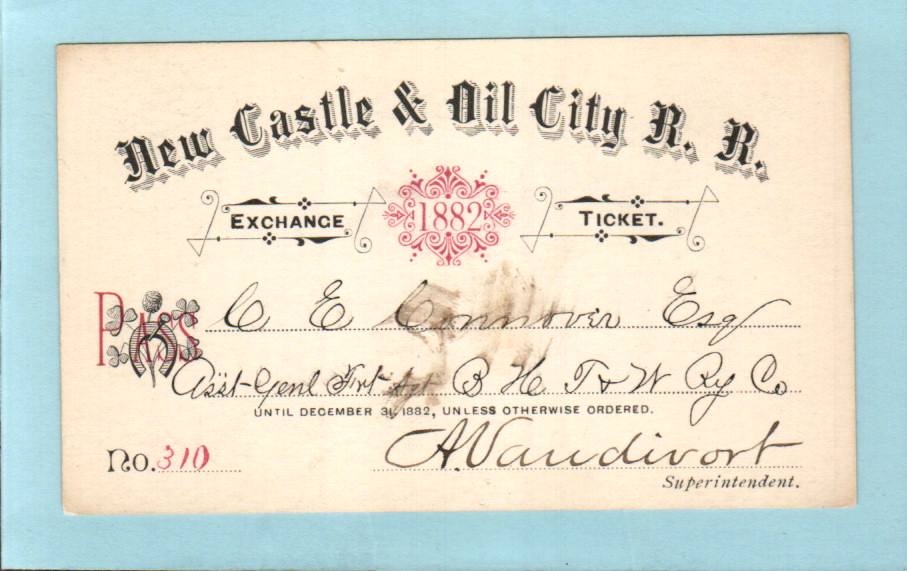 New Castle & Oil City R. R.
EXCHANGE 1882 TICKET.
PASS C E Connover Esq
Asst Genl Frt Agt B H T & W Ry Co
UNTIL DECEMBER 31, 1882, UNLESS OTHERWISE ORDERED.
No. 310 A. Vandivort
Superintendent.